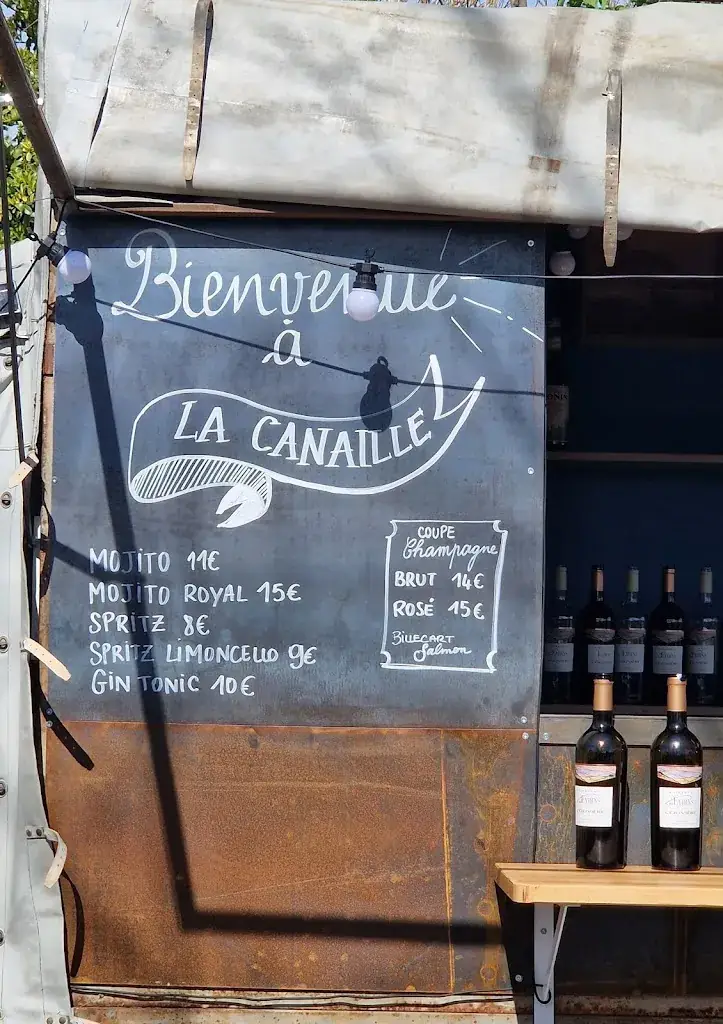 Bienvenue
à
LA CANAILLE
MOJITO 11€
MOJITO ROYAL 15€
SPRITZ 8€
SPRITZ LIMONCELLO 9€
GIN TONIC 10€
COUPE
Champagne
BRUT 14€
ROSÉ 15€
BILLECART
Salmon